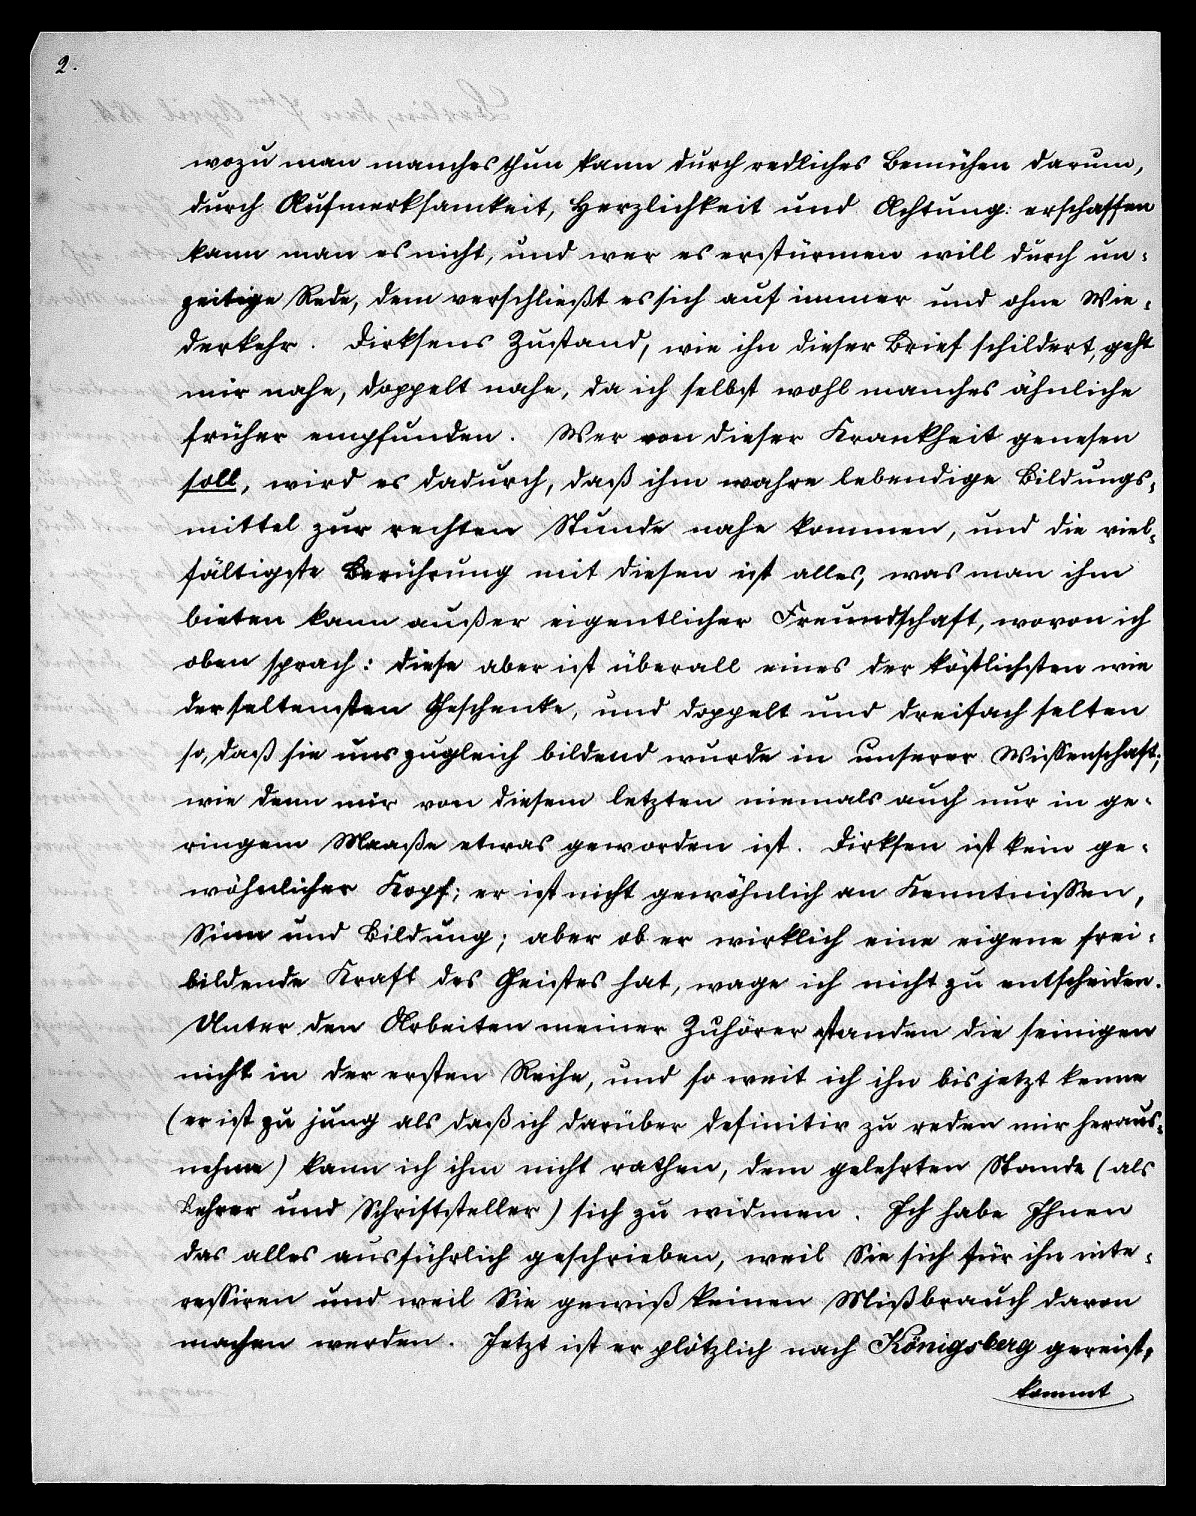 2.
wozu man manches thun kann durch redliches Bemühen darum,
durch Aufmerksamkeit, Herzlichkeit und Achtung: erschaffen
kann man es nicht, und wer es erstürmen will durch un-
zeitige Rede, dem verschließt es sich auf immer und ohne Wie-
derkehr. Dirksens Zustand, wie ihn dieser Brief schildert, geht
mir nahe, doppelt nahe, da ich selbst wohl manches ähnliche
früher empfunden. Wer von dieser Krankheit genesen
soll, wird es dadurch, daß ihm wahre lebendige Bildungs-
mittel zur rechten Stunde nahe kommen, und die viel-
fältigste Berührung mit diesen ist alles, was man ihm
bieten kann außer eigentlicher Freundschaft, wovon ich
oben sprach: diese aber ist überall eines der köstlichsten wie
der seltensten Geschenke, und doppelt und dreifach selten
so, daß sie uns zugleich bildend wurde in unserer Wissenschaft;
wie denn mir von diesem letzten niemals auch nur in ge-
ringem Maaße etwas geworden ist. Dirksen ist kein ge-
wöhnlicher Kopf; er ist nicht gewöhnlich an Kenntnissen,
Sinn und Bildung; aber ob er wirklich eine eigene frei-
bildende Kraft des Geistes hat, wage ich nicht zu entscheiden.
Unter den Arbeiten meiner Zuhörer standen die seinigen
nicht in der ersten Reihe, und so weit ich ihn bis jetzt kenne
(er ist zu jung als daß ich darüber definitiv zu reden mir heraus-
nehme) kann ich ihm nicht rathen, dem gelehrten Stande (als
Lehrer und Schriftsteller) sich zu widmen. Ich habe Ihnen
das alles ausführlich geschrieben, weil Sie sich für ihn inte-
ressiren und weil Sie gewiß keinen Mißbrauch davon
machen werden. Jetzt ist er plötzlich nach Königsberg gereist,
kommt